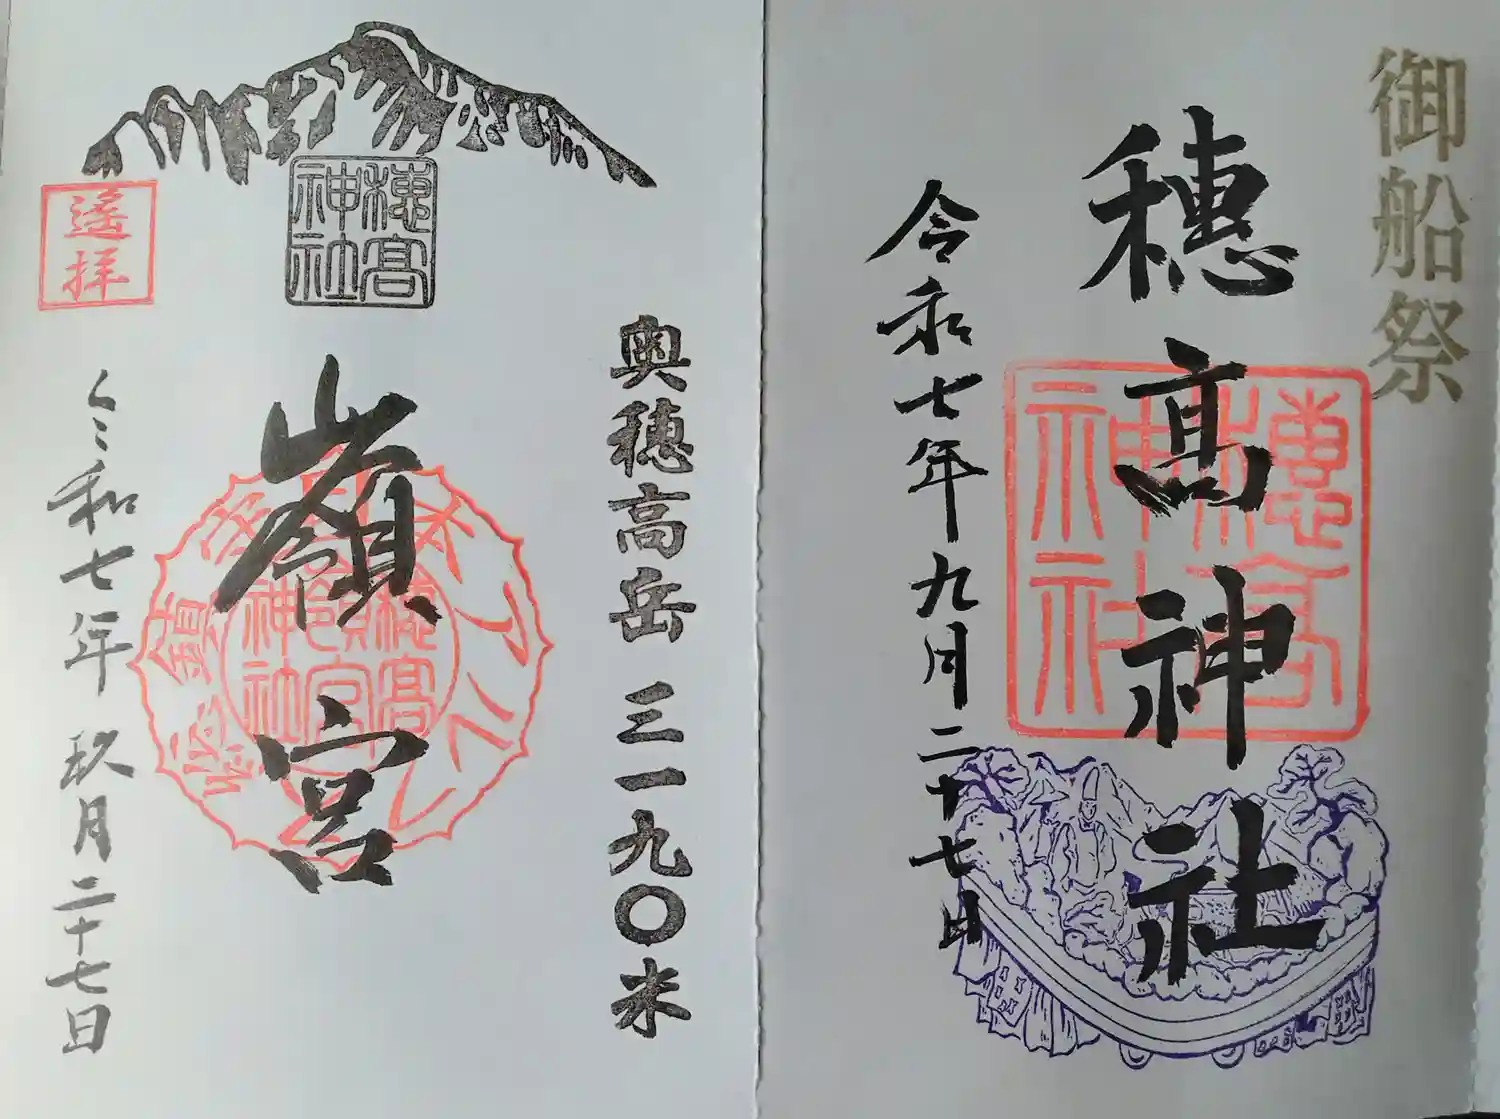 御船祭
穂高神社
穂高神社
令和七年九月二十七日
奥穂高岳 三一九〇米
穂高神社
嶺宮
穂高嶺宮神社
遙拝
令和七年玖月二十七日